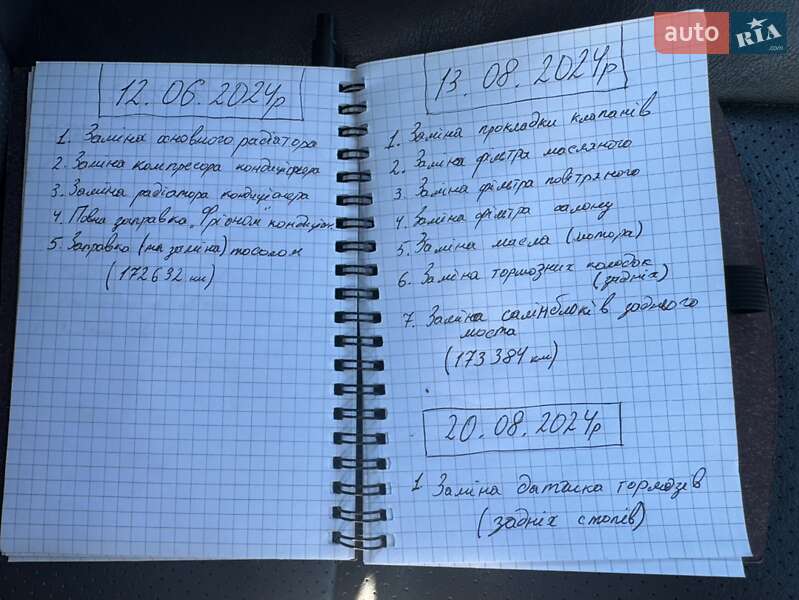 auto RIA .com
12.06.2024р
1. Заміна основного радіатора
2. Заміна компресора кондиціфера
3. Заміна радіатора кондиціонера
4. Повна заправка "Фріоном" кондиціон.
5. Заправка (та заміна) тосолом
(172632 км)
13.08.2024р
1. Заміна прокладки клапанів
2. Заміна фільтра масляного
3. Заміна фільтра повітряного
4. Заміна фільтра салону
5. Заміна масла (мотора)
6. Заміна тормозних колодок
(задніх)
7. Заміна салінблоків заднього
моста
(173384 км)
20.08.2024р
1 Заміна датчика тормозів
(задніх стопів)